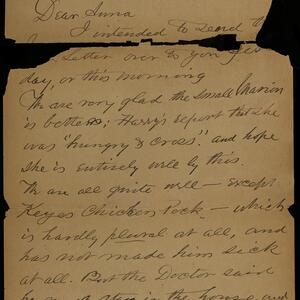 Dear Anna
I intended to send
Letter over to you yes
day, or this morning
We are very glad the small Marion
is better; Harry's report that she
was "hungry & cross". and hope
she is entirely well by this.
We are all quite well - except
Keyes Chicken Pock - which
is hardly plural at all, and
has not made him sick
at all. But the Doctor said
he in the house and